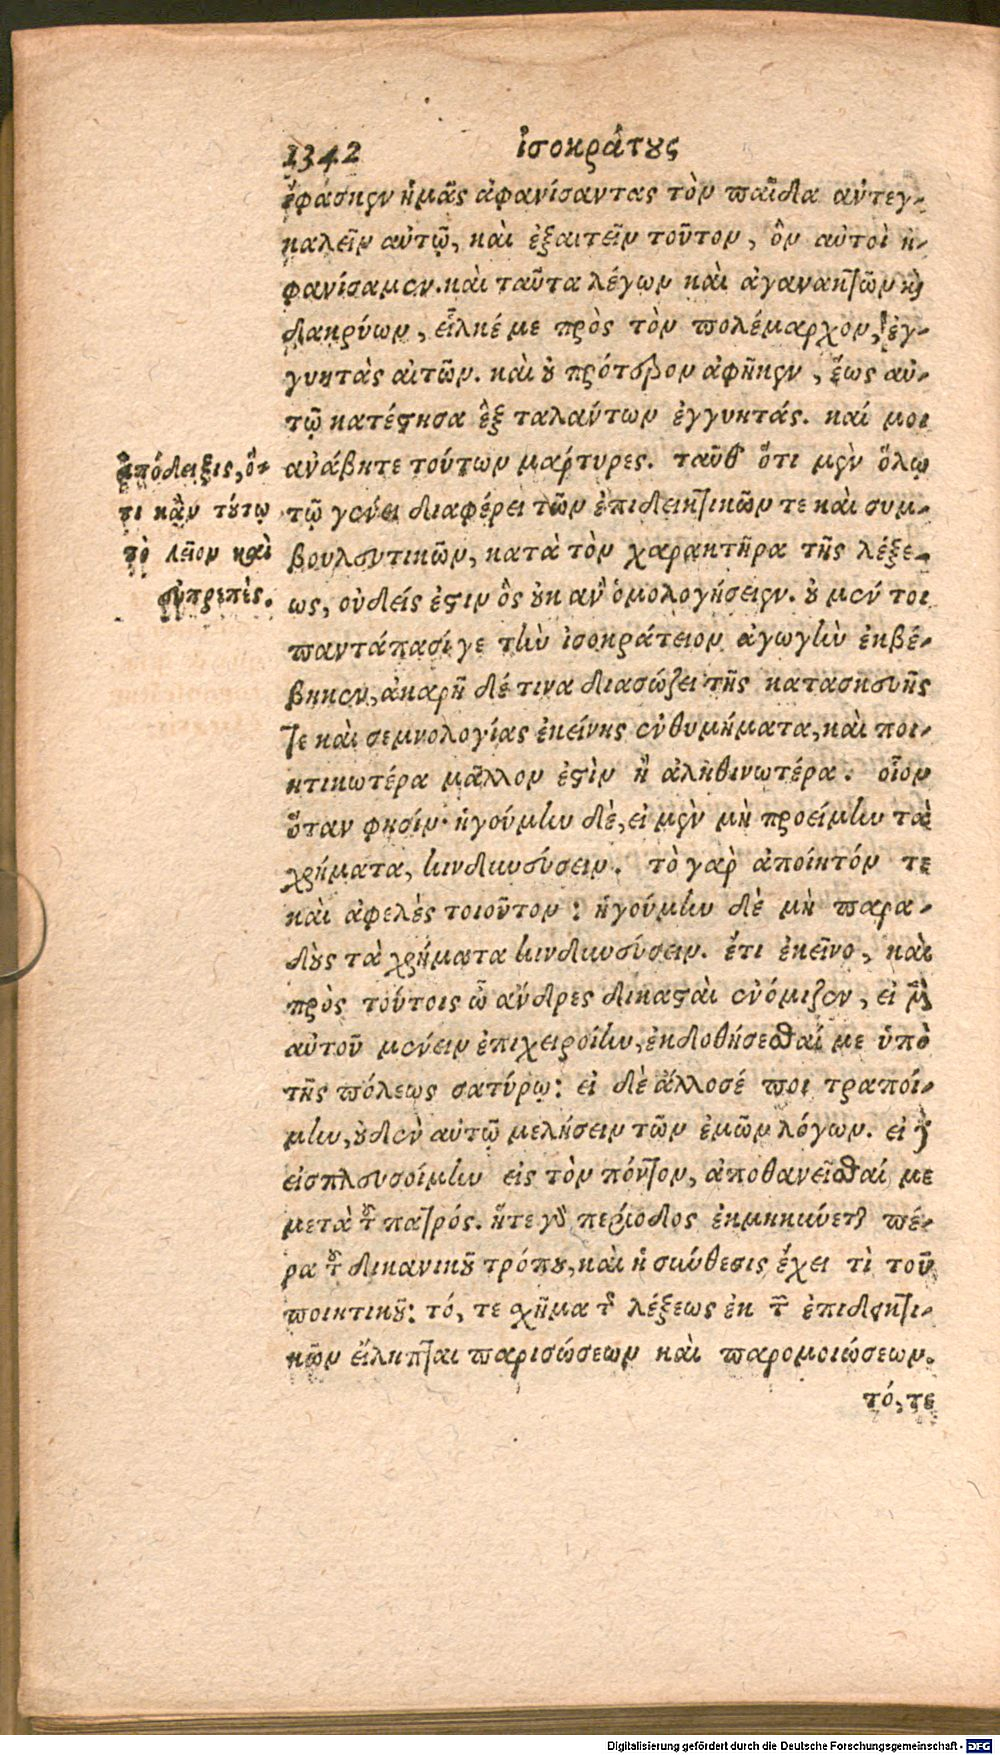 1342 ἰσοκράτους
ἔφασκεν ἡμᾶς ἀφανίσαντας τὸν παῖδα ἀντεγ-
καλεῖν αὐτῷ, καὶ ἐξαιτεῖν τοῦτον, ὃν αὐτοὶ ἠ-
φανίσαμεν. καὶ ταῦτα λέγων καὶ ἀγανακτῶν καὶ
δακρύων, εἷλκέ με πρὸς τὸν πολέμαρχον, ἐγ-
γυητὰς αἰτῶν. καὶ οὐ πρότερον ἀφῆκεν, ἕως αὐ-
τῷ κατέστησα ἓξ ταλάντων ἐγγυητάς. καί μοι
ἀνάβητε τούτων μάρτυρες. ταῦθ' ὅτι μὲν ὅλῳ
τῷ γένει διαφέρει τῶν ἐπιδεικτικῶν τε καὶ συμ-
βουλευτικῶν, κατὰ τὸν χαρακτῆρα τῆς λέξε-
ως, οὐδείς ἐστιν ὃς οὐκ ἂν ὁμολογήσειεν. οὐ μέν τοι
παντάπασί γε τὴν ἰσοκράτειον ἀγωγὴν ἐκβέ-
βηκεν, ἀκαρῆ δέ τινα διασώζει τῆς κατασκευῆς
τε καὶ σεμνολογίας ἐκείνης ἐνθυμήματα, καὶ ποι-
ητικωτέρα μᾶλλον ἐστὶν ἢ ἀληθινωτέρα. οἷον
ὅταν φησίν· ἡγούμην δὲ, εἰ μὲν μὴ προείμην τὰ
χρήματα, κινδυνεύσειν. τὸ γὰρ ἀποίητόν τε
καὶ ἀφελὲς τοιοῦτον: ἡγούμην δὲ μὴ παρα-
δοὺς τὰ χρήματα κινδυνεύσειν. ἔτι ἐκεῖνο, καὶ
πρὸς τούτοις ὦ ἄνδρες δικασταὶ ἐνόμιζεν, εἰ μὲν
αὐτοῦ μένειν ἐπιχειροίην, ἐκδοθήσεσθαί με ὑπὸ
τῆς πόλεως σατύρῳ: εἰ δὲ ἄλλοσέ ποι τραποί-
μην, οὐδὲν αὐτῷ μελήσειν τῶν ἐμῶν λόγων. εἰ δὲ
εἰσπλευσοίμην εἰς τὸν πόντον, ἀποθανεῖσθαί με
μετὰ τοῦ πατρός. ἥτε γὰρ περίοδος ἐκμηκύνεται πέ-
ρα τοῦ δικανικοῦ τρόπου, καὶ ἡ σύνθεσις ἔχει τὶ τοῦ
ποιητικοῦ: τό, τε σχῆμα τῆς λέξεως ἐκ τῶν ἐπιδεικτι-
κῶν εἴληπται παρισώσεων καὶ παρομοιώσεων.
τό, τε
ἀπόδειξις, ὅ-
τι κἂν τούτῳ
τὸ λεῖον καὶ
εὐπρεπὲς.
Digitalisierung gefördert durch die Deutsche Forschungsgemeinschaft - DFG